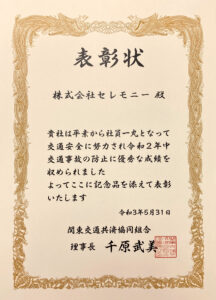 表彰状
株式会社セレモニー 殿
貴社は平素から社員一丸となって
交通安全に努力され令和2年中
交通事故の防止に優秀な成績を
収められました
よってここに記念品を添えて表彰
いたします
令和3年5月31日
関東交通共済協同組合
理事長 千原武美